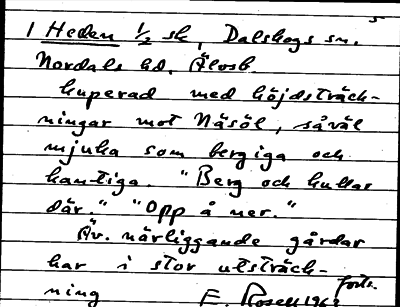 5
1 Heden 1/2 sk, Dalskogs sn.
Nordals hd, Älvsb.
kuperad med höjdsträck-
ningar mot NäSöl, såväl
mjuka som bergiga och
kantiga. "Berg och kullar
där." "Opp å ner."
Äv. närliggande gårdar
har i stor utsträck-
ning forts.
E. Rosell 1962